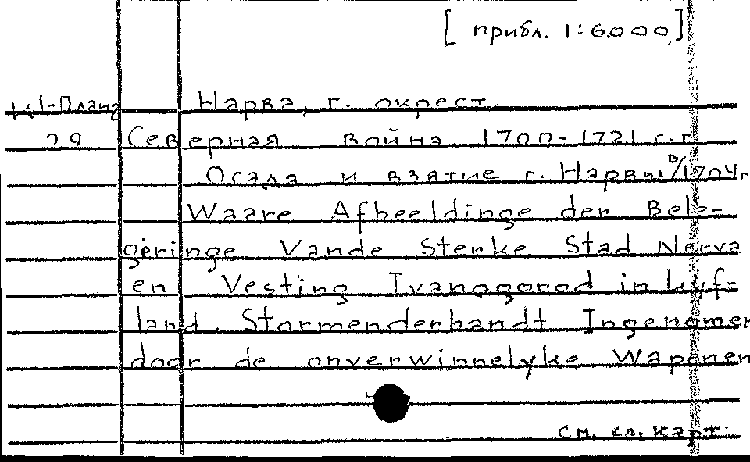 [ прибл. 1:6000 ]
К1-Планы Нарва, г. окрест.
29 Северная война 1700-1721 г.г.
Осада и взятие г. Нарвы в/1704г
Waare Afbeeldinge der Bele-
geringe Vande Sterke Stad Nerva
en Vesting Ivanogorod in Lyf-
land. Stormenderhandt Ingenomen
door de onverwinnelyke Wapenen
См. сл. карт.